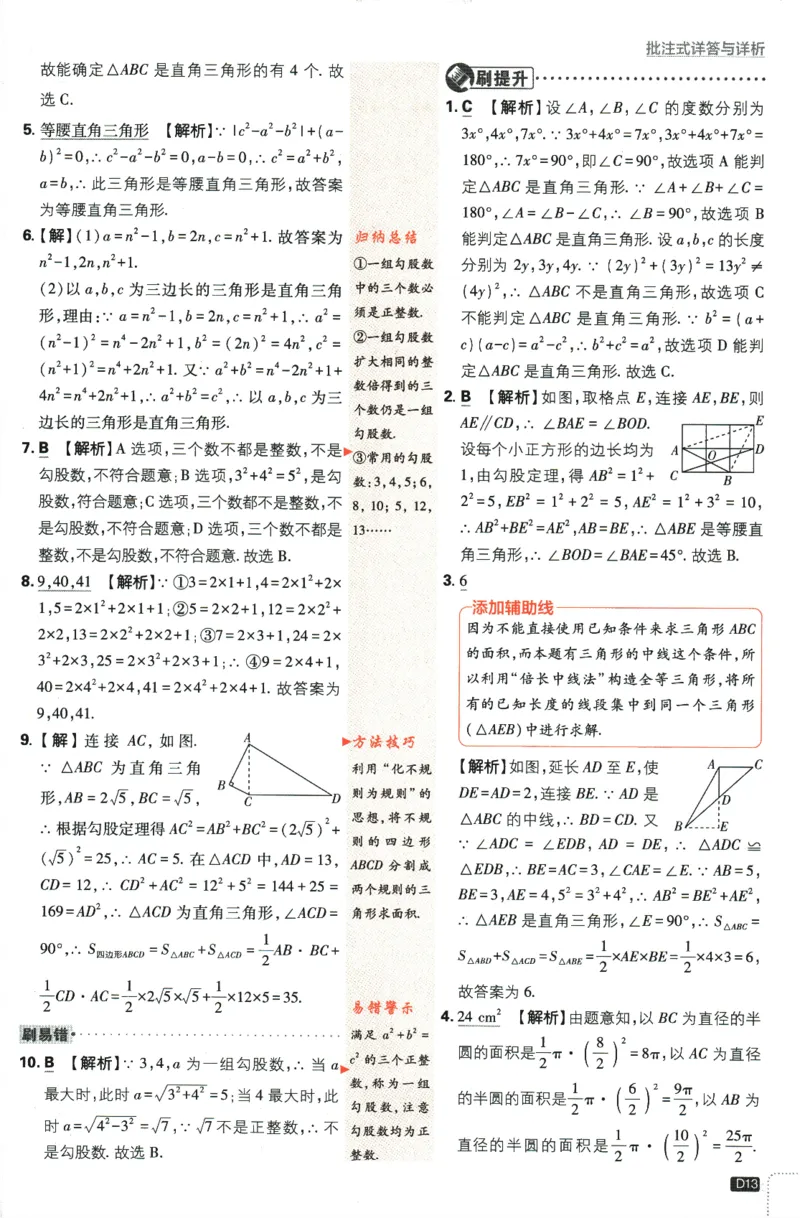 批注式详答与详析
故能确定△ABC 是直角三角形的有 4 个. 故
选 C.
5. 等腰直角三角形 【解析】∵ |c²-a²-b²|+(a-
b)²=0,∴ c²-a²-b²=0,a-b=0,∴ c²=a²+b²,
a=b,∴ 此三角形是等腰直角三角形,故答案
为等腰直角三角形.
6.【解】(1)a=n²-1,b=2n,c=n²+1. 故答案为
n²-1,2n,n²+1.
(2)以 a,b,c 为三边长的三角形是直角三角
形,理由:∵ a=n²-1,b=2n,c=n²+1,∴ a²=
(n²-1)²=n⁴-2n²+1,b²=(2n)²=4n²,c²=
(n²+1)²=n⁴+2n²+1. 又∵ a²+b²=n⁴-2n²+1+
4n²=n⁴+2n²+1,∴ a²+b²=c²,∴ 以 a,b,c 为三
边长的三角形是直角三角形.
7. B 【解析】A 选项,三个数不都是整数,不是
勾股数,不符合题意;B 选项,3²+4²=5²,是勾
股数,符合题意;C 选项,三个数都不是整数,不
是勾股数,不符合题意;D 选项,三个数不都是
整数,不是勾股数,不符合题意. 故选 B.
8. 9,40,41 【解析】∵ ①3=2×1+1,4=2×1²+2×
1,5=2×1²+2×1+1;②5=2×2+1,12=2×2²+
2×2,13=2×2²+2×2+1;③7=2×3+1,24=2×
3²+2×3,25=2×3²+2×3+1;∴ ④9=2×4+1,
40=2×4²+2×4,41=2×4²+2×4+1. 故答案为
9,40,41.
9.【解】连接 AC, 如图.
∵ △ABC 为直角三角
形,AB=2√5,BC=√5,
A
B
C
D
∴ 根据勾股定理得 AC²=AB²+BC²=(2√5)²+
(√5)²=25,∴ AC=5. 在△ACD 中,AD=13,
CD=12,∴ CD²+AC²=12²+5²=144+25=
169=AD²,∴ △ACD 为直角三角形,∠ACD=
90°,∴ S四边形ABCD=S△ABC+S△ACD=1/2AB·BC+
1/2CD·AC=1/2×2√5×√5+1/2×12×5=35.
刷易错
10. B 【解析】∵ 3,4,a 为一组勾股数,∴ 当 a
最大时,此时 a=√(3²+4²)=5;当 4 最大时,此
时 a=√(4²-3²)=√7,∵ √7不是正整数,∴ 不
是勾股数. 故选 B.
归纳总结
①一组勾股数
中的三个数必
须是正整数.
②一组勾股数
扩大相同的整
数倍得到的三
个数仍是一组
勾股数.
③常用的勾股
数:3,4,5;6,
8, 10; 5, 12,
13……
方法技巧
利用“化不规
则为规则”的
思想,将不规
则的四边形
ABCD 分割成
两个规则的三
角形求面积.
易错警示
满足 a²+b²=
c² 的三个正整
数,称为一组
勾股数,注意
勾股数均为正
整数.
刷提升
1. C 【解析】设∠A,∠B,∠C 的度数分别为
3x°,4x°,7x°. ∵ 3x°+4x°=7x°,3x°+4x°+7x°=
180°,∴ 7x°=90°,即∠C=90°,故选项 A 能判
定△ABC 是直角三角形. ∵ ∠A+∠B+∠C=
180°,∠A=∠B-∠C,∴ ∠B=90°,故选项 B
能判定△ABC 是直角三角形. 设 a,b,c 的长度
分别为 2y,3y,4y. ∵ (2y)²+(3y)²=13y²≠
(4y)²,∴ △ABC 不是直角三角形,故选项 C
不能判定△ABC 是直角三角形. ∵ b²=(a+
c)(a-c)=a²-c²,∴ b²+c²=a²,故选项 D 能判
定△ABC 是直角三角形. 故选 C.
2. B 【解析】如图,取格点 E,连接 AE,BE,则
AE∥CD,∴ ∠BAE=∠BOD.
设每个小正方形的边长均为
1,由勾股定理,得 AB²=1²+
E
A
O
D
C
B
2²=5,EB²=1²+2²=5,AE²=1²+3²=10,
∴ AB²+BE²=AE²,AB=BE,∴ △ABE 是等腰直
角三角形,∴ ∠BOD=∠BAE=45°. 故选 B.
3. 6
添加辅助线
因为不能直接使用已知条件来求三角形 ABC
的面积,而本题有三角形的中线这个条件,所
以利用“倍长中线法”构造全等三角形,将所
有的已知长度的线段集中到同一个三角形
(△AEB)中进行求解.
【解析】如图,延长 AD 至 E,使
DE=AD=2,连接 BE. ∵ AD 是
△ABC 的中线,∴ BD=CD. 又
A
C
D
B
E
∵ ∠ADC=∠EDB, AD=DE, ∴ △ADC≌
△EDB,∴ BE=AC=3,∠CAE=∠E. ∵ AB=5,
BE=3,AE=4,5²=3²+4²,∴ AB²=BE²+AE²,
∴ △AEB 是直角三角形,∠E=90°,∴ S△ABC=
S△ABD+S△ACD=S△ABE=1/2×AE×BE=1/2×4×3=6,
故答案为 6.
4. 24 cm² 【解析】由题意知,以 BC 为直径的半
圆的面积是1/2π·(8/2)²=8π,以 AC 为直径
的半圆的面积是1/2π·(6/2)²=9π/2,以 AB 为
直径的半圆的面积是1/2π·(10/2)²=25π/2.
D13